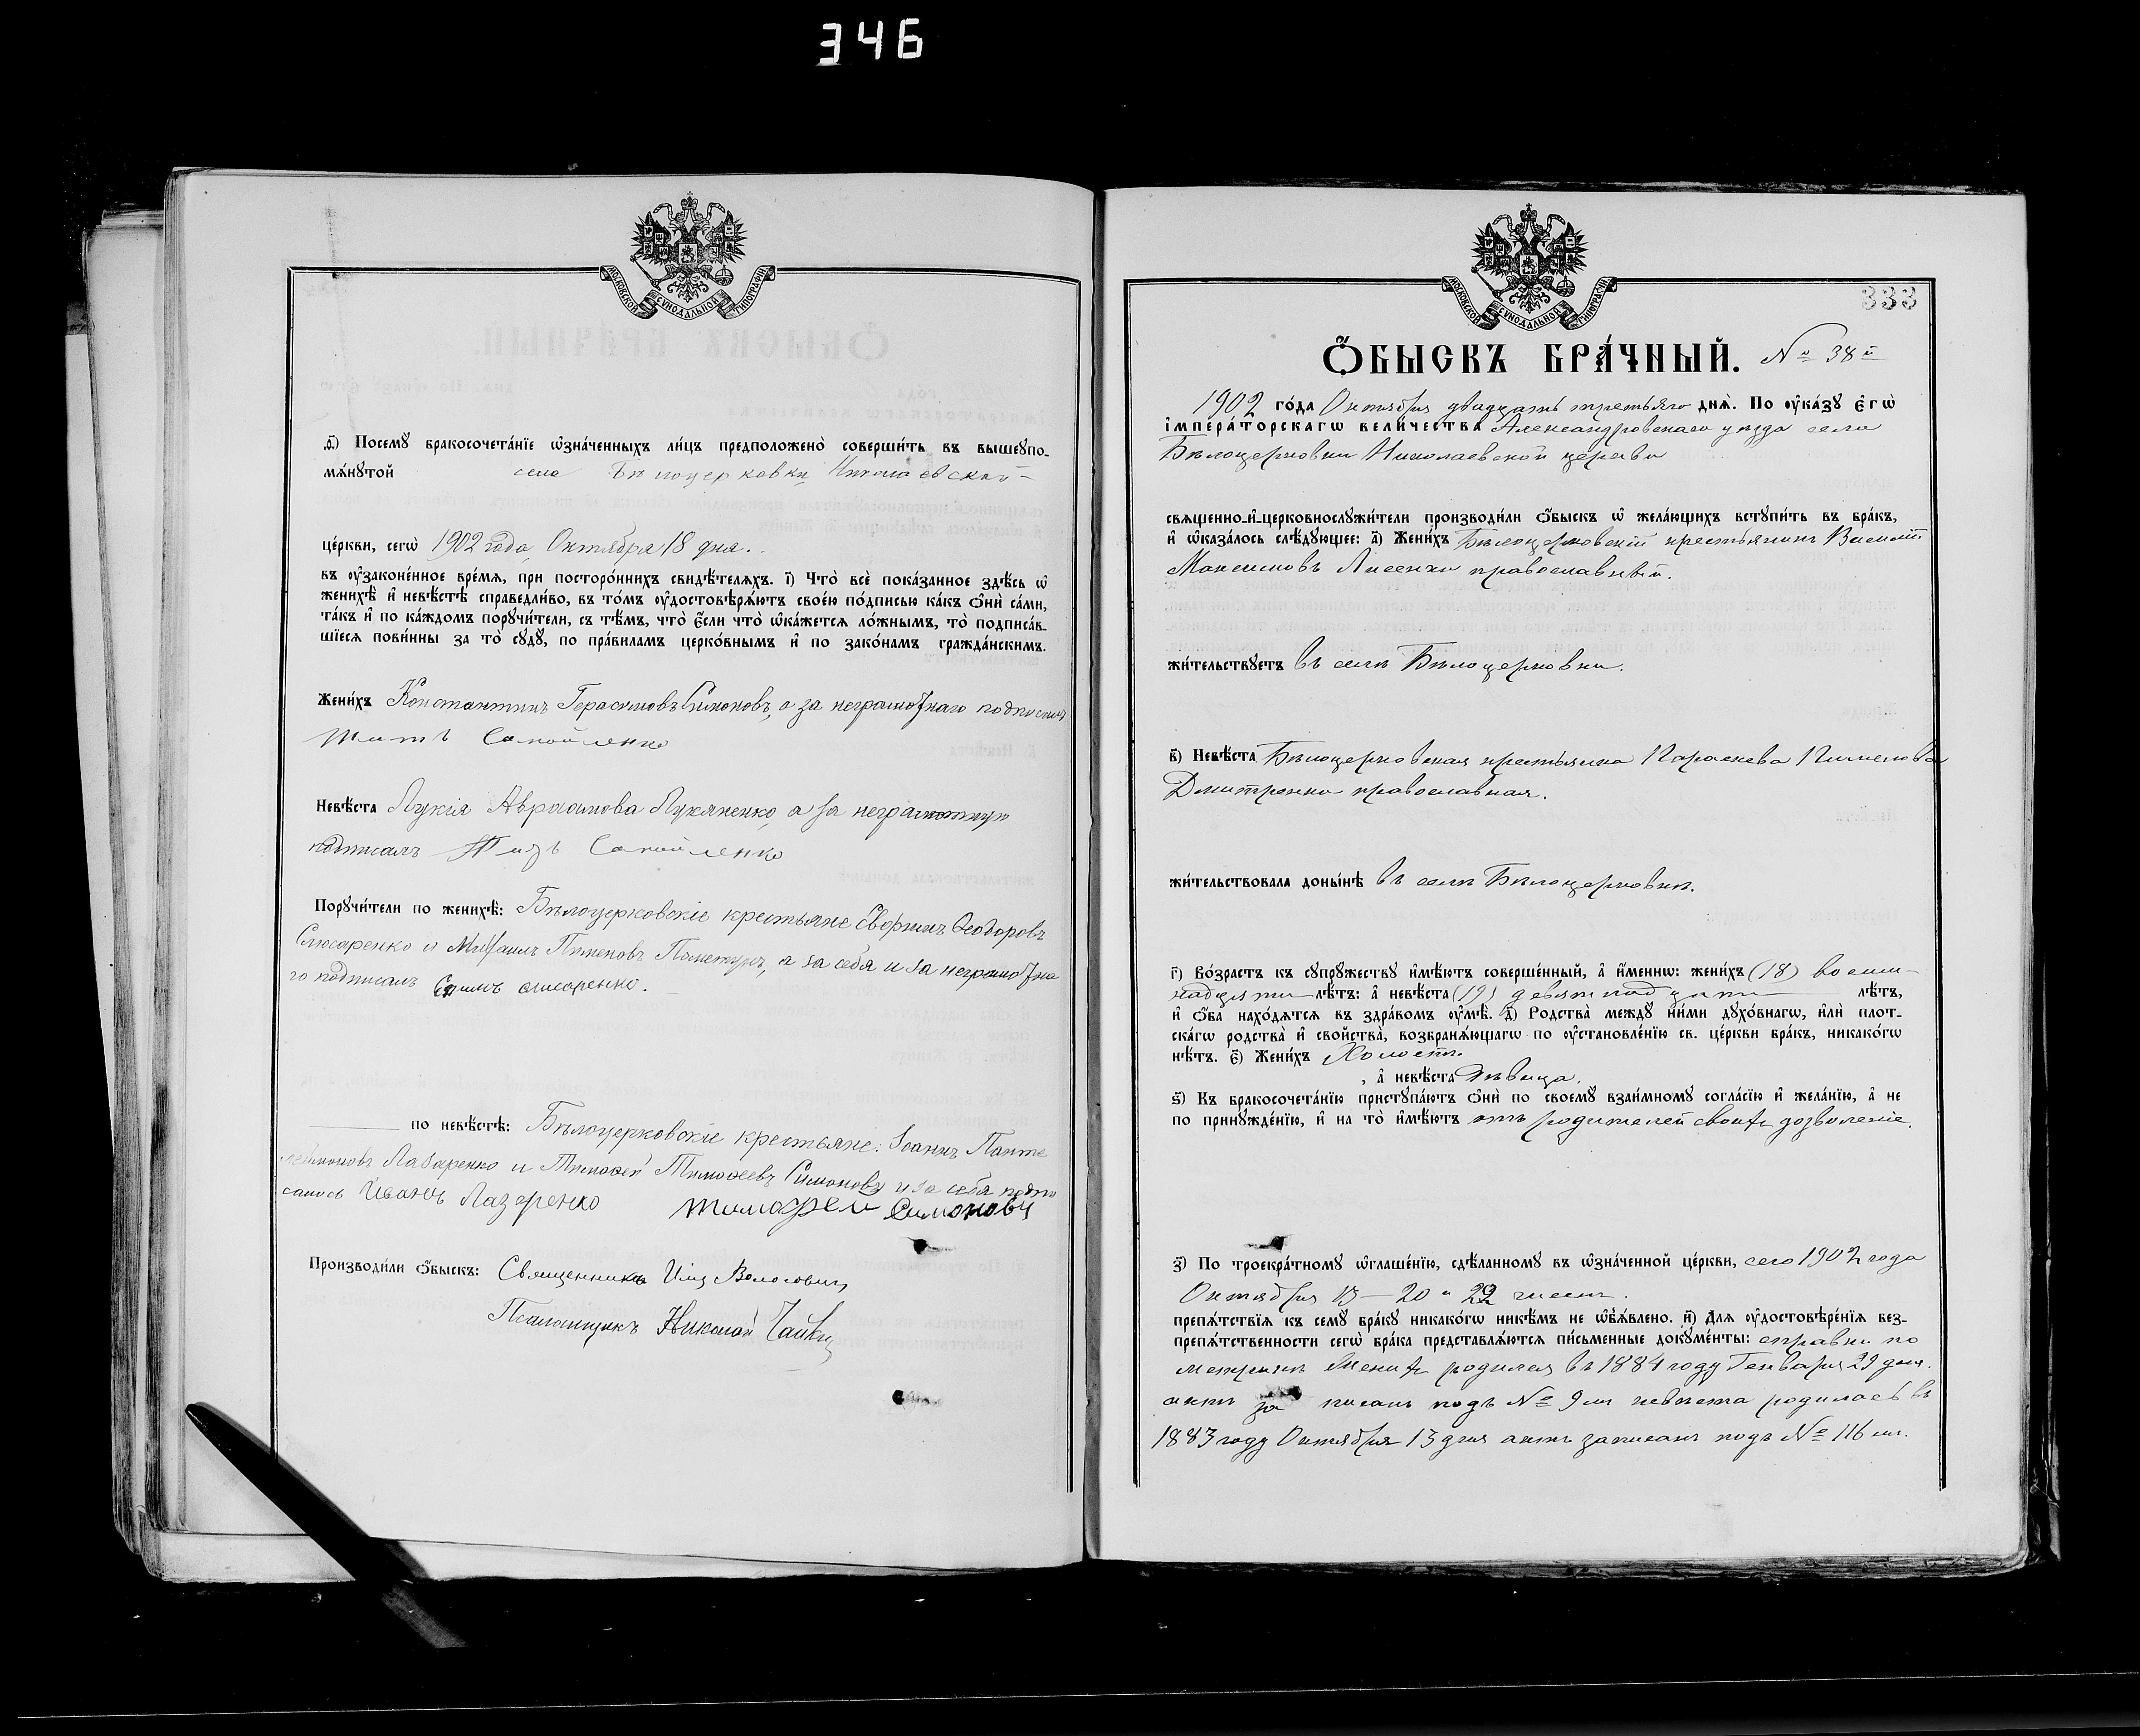 346
МОСКОВСКОЙ СѴНОДАЛЬНОЙ ТИПОГРАФІИ
ѳ҃) Посемꙋ бракосочета́нїе ѡ҆зна́ченныхъ ли́цъ предположено̀ соверши́ть въ вышеꙋпо-
мѧ́нꙋтой села Бѣлоцерковки Николаевской
це́ркви, сегѡ̀ 1902 года Октября 18 дня.
въ ᲂу҆зако́ненное вре́мѧ, при посторо́ннихъ свидѣ́телѧхъ. і҃) Что̀ всѐ пока́занное здѣ́сь ѡ҆
женихѣ̀ и҆ невѣ́стѣ справедли́во, въ то́мъ ᲂу҆достовѣрѧ́ютъ свое́ю по́дписью ка́къ ѻ҆нѝ са́ми,
та́къ и҆ по ка́ждомъ порꙋчи́тели, съ тѣ́мъ, что̀ є҆́сли что̀ ѡ҆ка́жетсѧ ло́жнымъ, то̀ подписа́в-
шїесѧ пови́нны за то̀ сꙋдꙋ̀, по пра́виламъ церко́внымъ и҆ по зако́намъ гражда́нскимъ.
Жени́хъ Константинъ Герасимовъ Симоновъ, а за неграмотнаго подписалъ
Титъ Самойленко
Невѣ́ста Лукія Авраамова Лукяненко, а за неграмотную
подписалъ Титъ Самойленко
Порꙋчи́тели по женихѣ̀: Бѣлоцерковскіе крестьяне Ѳеодоровъ
Слюсаренко и Михаилъ Пименовъ а за себя и за неграмотна
го подписалъ
по невѣ́стѣ: Бѣлоцерковскіе крестьяне: Іоаннъ Панте
леимоновъ Лазаренко и Тимоѳей Тимоѳеевъ Симоновъ и за себя подпи
сались Иванъ Лазаренко Тимофей Симоновъ
Производи́ли ѻ҆́быскъ: Священникъ Илія
Псаломщикъ Николай Чайка
МОСКОВСКОЙ СѴНОДАЛЬНОЙ ТИПОГРАФІИ
333
Ѻ҆́БЫСКЪ БРА́ЧНЫЙ. № 38й
1902 го́да Октября двадцать третьяго днѧ̀. По ᲂу҆ка́зꙋ є҆гѡ̀
і҆мпера́торскагѡ вели́чества Александровскаго уѣзда села
Бѣлоцерковки Николаевской церкви
свѧще́нно-и҆-церковнослꙋжи́тели производи́ли ѻ҆́быскъ ѡ҆ жела́ющихъ встꙋпи́ть въ бра́къ,
и҆ ѡ҆каза́лось слѣ́дꙋющее: а҃) Жени́хъ Бѣлоцерковскій крестьянинъ Василій
Максимовъ Лисенко православный.
жи́тельствꙋетъ въ селѣ Бѣлоцерковки.
в҃) Невѣ́ста Бѣлоцерковская крестьянка Параскева Пименова
Дмитренко православная.
жи́тельствовала доны́нѣ въ селѣ Бѣлоцерковкѣ.
г҃) Во́зрастъ къ сꙋпрꙋ́жествꙋ и҆мѣ́ютъ соверше́нный, а҆ и҆́меннѡ: жени́хъ (18) восем-
надцати лѣ́тъ: а҆ невѣ́ста (19) девятнадцати лѣ́тъ,
и҆ ѻ҆́ба нахо́дѧтсѧ въ здра́вомъ ᲂу҆мѣ̀. д҃) Родства̀ междꙋ̀ ни́ми дꙋхо́внагѡ, и҆лѝ плот-
ска́гѡ родства̀ и҆ свойства̀, возбранѧ́ющагѡ по ᲂу҆становле́нїю св. це́ркви бра́къ, никако́гѡ
нѣ́тъ. є҃) Жени́хъ Холостъ
, а҆ невѣ́ста дѣвица.
ѕ҃) Къ бракосочета́нїю пристꙋпа́ютъ ѻ҆нѝ по своемꙋ̀ взаи́мномꙋ согла́сїю и҆ жела́нїю, а҆ не
по принꙋжде́нїю, и҆ на то̀ и҆мѣ́ютъ отъ родителей своихъ дозволеніе.
з҃) По троекра́тномꙋ ѡ҆глаше́нїю, сдѣ́ланномꙋ въ ѡ҆зна́ченной це́ркви, сего 1902 года
Октября 13 – 20 и 22 чиселъ.
препѧ́тствїѧ къ семꙋ̀ бра́кꙋ никако́гѡ никѣ́мъ не ѡ҆б̾ѧ́влено. и҃) Для ᲂу҆достовѣре́нїѧ без-
препѧ́тственности сегѡ̀ бра́ка представлѧ́ютсѧ пи́сьменные докꙋме́нты: справки по
метрикѣ Женихъ родился въ 1884 году Генваря 29 дня.
актъ записанъ подъ № 9м невѣста родилась въ
1883 году Октября 13 дня актъ записанъ подъ № 116м.